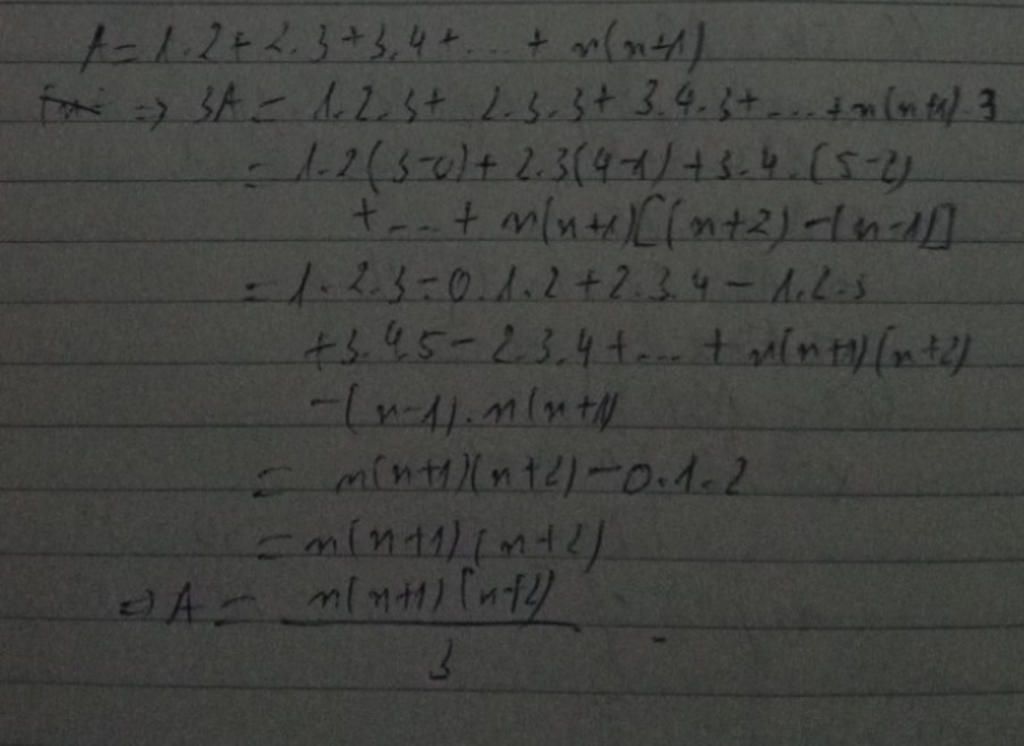 A = 1.2 + 2.3 + 3.4 + ... + n(n+1)
=> 3A = 1.2.3 + 2.3.3 + 3.4.3 + ... + n(n+1).3
= 1.2(3-0) + 2.3(4-1) + 3.4.(5-2)
+ ... + n(n+1)[(n+2) - (n-1)]
= 1.2.3 - 0.1.2 + 2.3.4 - 1.2.3
+ 3.4.5 - 2.3.4 + ... + n(n+1)(n+2)
- (n-1).n(n+1)
= n(n+1)(n+2) - 0.1.2
= n(n+1)(n+2)
=> A = n(n+1)(n+2)
3